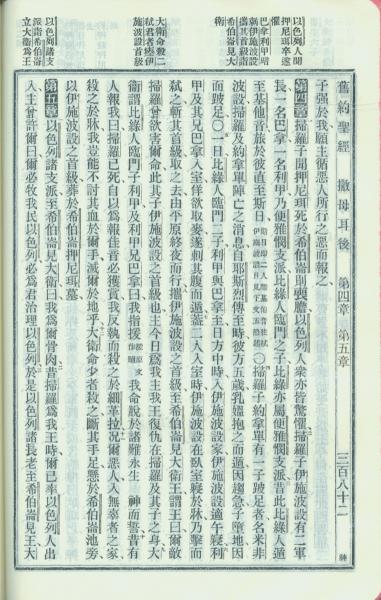 以色列人聞
押尼珥卒遂
懼
巴拿利甲暗
弒伊施波設
攜其首級詣
希伯崙見大
衛
大衛命殺二
弒君者瘞伊
施波設首級
以色列諸支
派詣希伯崙
立大衛爲王
舊約聖經 撒母耳後 第四章 第五章 三百八十二
子强於我願主循惡人所行之惡而報之
第四章 掃羅子聞押尼珥死於希伯崙則喪膽以色列人衆亦皆驚懼掃羅子伊施波設有二軍
長一名巴拿一名利甲乃便雅憫支派比綠人臨門之子比綠亦屬便雅憫支派昔此比綠人遁
至基他音旅於彼直至斯日
〇掃羅子約拿單有一子跛足者名米非
波設掃羅及約拿單陣亡之消息自耶斯烈傳至時彼方五歲乳媼抱之而遁因趨急子墮地因
而跛足〇一日比綠人臨門二子利甲與巴拿至日方中時入伊施波設家伊施波設適午寢利
甲及其兄巴拿入室佯欲取麥遂刺其腹而遁蓋二人入室時伊施波設在臥室寢於牀乃擊而
弒之斬其首級取之去由平原終夜而行攜伊施波設之首級至希伯崙見大衛王謂王曰爾敵
掃羅曾欲害爾命此其子伊施波設之首級也主今日爲我主我王復仇在掃羅及其子之身大
衛謂比綠人臨門子利甲及利甲兄巴拿曰我指援我命脫於諸難永生神而誓昔有
人報我曰掃羅已死自以爲報佳音必獲賞我反執而殺之於細革拉况爾惡人入無辜者之家
殺之於牀我豈能不討其血於爾手滅爾於地乎大衛命少者殺之斷其手足懸於希伯崙池旁
以伊施波設之首級葬於希伯崙押尼珥墓
第五章 以色列諸支派至希伯崙見大衛曰我爲爾骨肉昔掃羅爲我王時爾已率以色列人出
入主曾許爾曰爾必牧我民以色列必爲君治理以色列於是以色列諸長老至希伯崙見王大